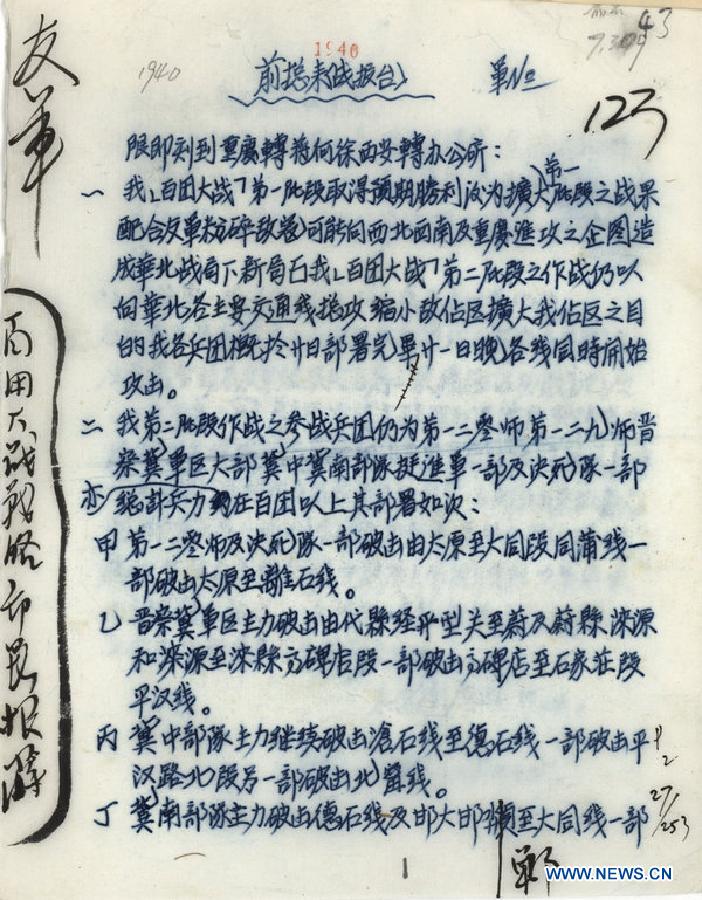 1940
1940
43
123
前总来战报(台)
军No
友军
限即刻到重慶轉蒋何徐西安轉办公厛：
一 我「百团大战」第一阶段取得预期勝利後为擴大第一阶段之战果
配合友军粉碎敌寇(可能)向西北西南及重慶進攻之企图造
成華北战局下新局面我「百团大战」第二阶段之作战仍以
向華北各主要交通线总攻縮小敌佔区擴大我佔区之目
的我各兵团概於廿日部署完畢廿一日晚各线同時開始
攻击。
二 我第二阶段作战之参战兵团仍为第一二零师第一二九师晋
察冀軍区大部冀中冀南部隊挺進軍一部及决死隊一部
总計兵力约在百团以上其部署如次：
甲 第一二零师及决死隊一部破击由太原至大同段同蒲线一
部破击太原至離石线。
乙 晋察冀軍区主力破击由代縣經平型关至蔚及蔚縣淶源
和淶源至淶縣方碑店段一部破击方碑店至石家莊段
平汉线。
丙 冀中部隊主力继续破击滄石线至德石线一部破击平
汉路北段另一部破击北寧线。
丁 冀南部隊主力破击德石线及邯大邯順至大同线一部
百团大战战略部署报蒋
1
WWW.NEWS.CN